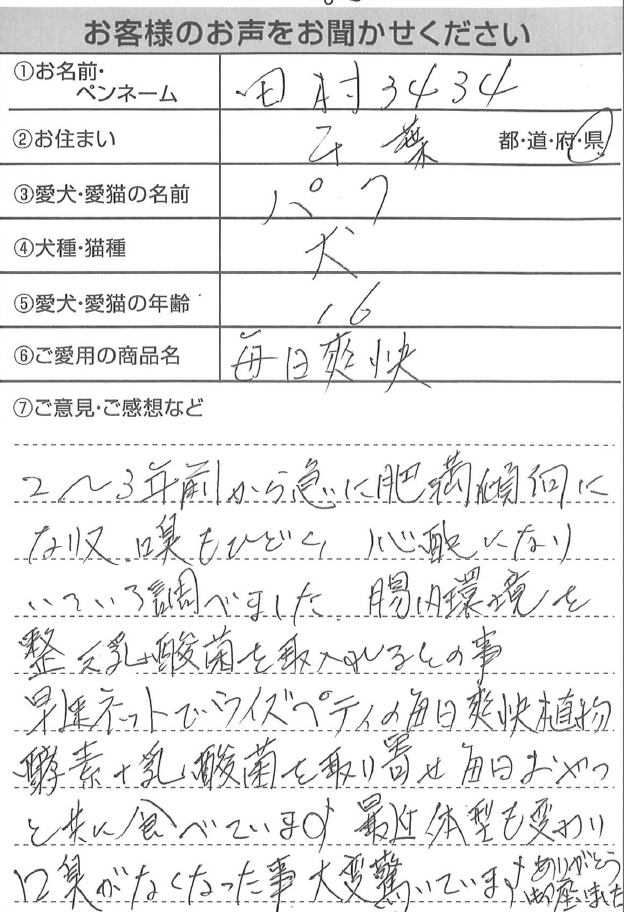 お客様のお声をお聞かせください
①お名前・ペンネーム 田村3434
②お住まい 千葉 都・道・府・県
③愛犬・愛猫の名前 パフ
④犬種・猫種 犬
⑤愛犬・愛猫の年齢 16
⑥ご愛用の商品名 毎日爽快
⑦ご意見・ご感想など
2〜3年前から急に肥満傾向に
なり又、口臭もひどく 心配になり
いろいろ調べました。腸内環境を
整え乳酸菌を取入れるとの事
早速ネットでワイズペティの毎日爽快植物
酵素+乳酸菌を取り寄せ毎日おやつ
と共に食べています♪ 最近体型も変わり
口臭がなくなった事大変驚いています♪ ありがとう
御座いました